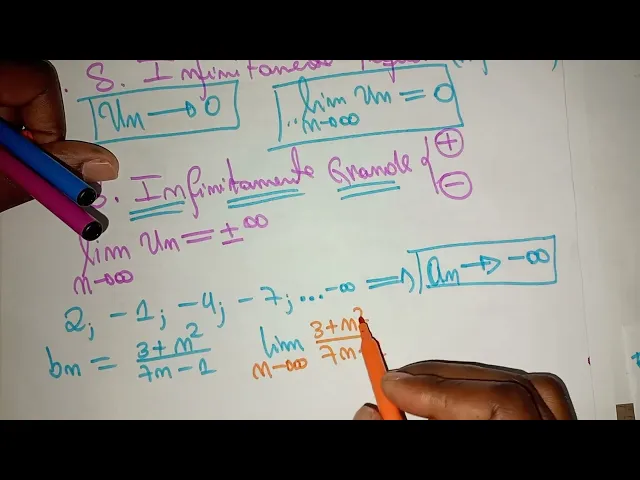 S. Infinitamente
Un → 0
lim Un = 0
n→∞
S. Infinitamente Grande { + −
lim Un = ±∞
n→∞
2; -1; -4; -7; ... -∞ ⇒ an → -∞
bn = (3+n²)/(7n-1)
lim (3+n²)/(7n-
n→∞